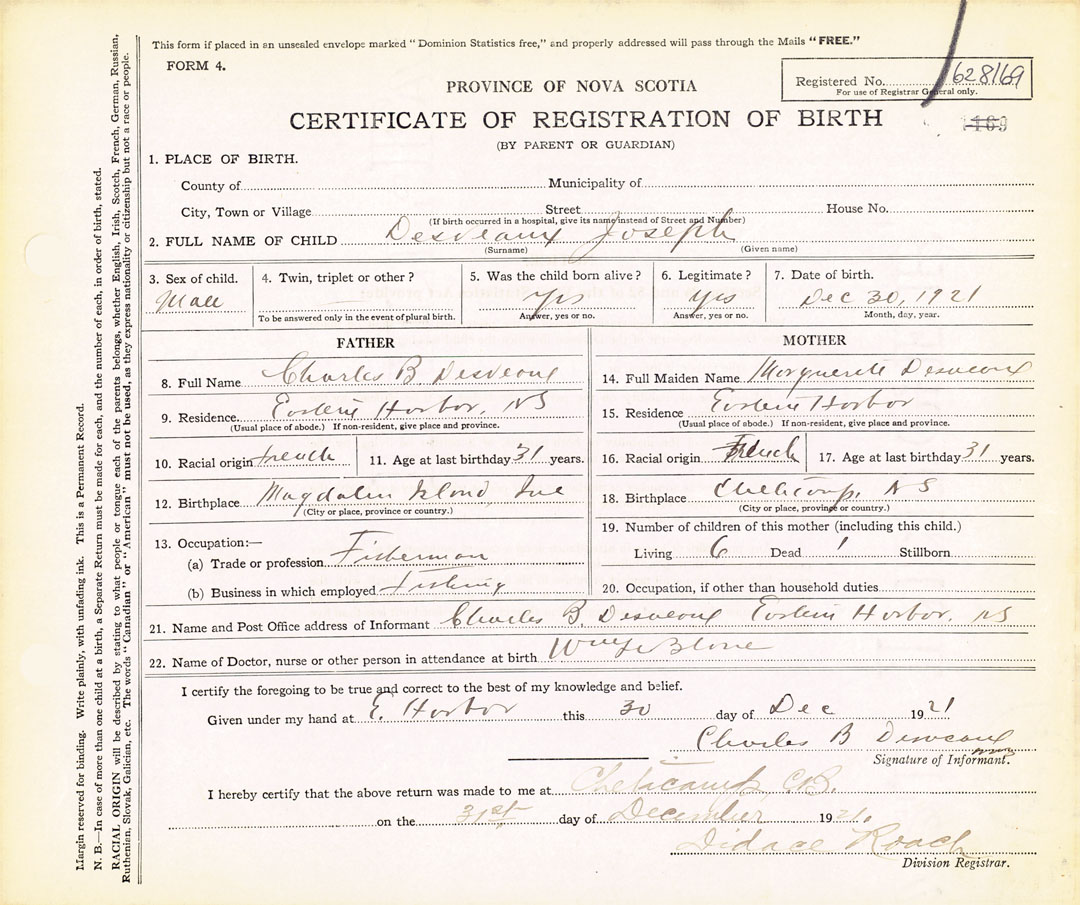 This form if placed in an unsealed envelope marked “Dominion Statistics free,” and properly addressed will pass through the Mails “FREE.”
FORM 4.
Registered No. 628169
For use of Registrar General only.
PROVINCE OF NOVA SCOTIA
CERTIFICATE OF REGISTRATION OF BIRTH
169
(BY PARENT OR GUARDIAN)
1. PLACE OF BIRTH.
County of Municipality of
City, Town or Village Street House No.
(If birth occurred in a hospital, give its name instead of Street and Number)
2. FULL NAME OF CHILD Desveaux Joseph
(Surname) (Given name)
3. Sex of child. 4. Twin, triplet or other? 5. Was the child born alive? 6. Legitimate? 7. Date of birth.
Male Yes Yes Dec 30, 1921
To be answered only in the event of plural birth. Answer, yes or no. Answer, yes or no. Month, day, year.
FATHER
8. Full Name Charles B Desveaux
9. Residence Eastern Harbor, NS
(Usual place of abode.) If non-resident, give place and province.
10. Racial origin French 11. Age at last birthday 31 years.
12. Birthplace Magdalen Island, Que
(City or place, province or country.)
13. Occupation:—
(a) Trade or profession Fisherman
(b) Business in which employed Fishing
MOTHER
14. Full Maiden Name Marguerite Desveaux
15. Residence Eastern Harbor
(Usual place of abode.) If non-resident, give place and province.
16. Racial origin French 17. Age at last birthday 31 years.
18. Birthplace Cheticamp, NS
(City or place, province or country.)
19. Number of children of this mother (including this child.)
Living 6 Dead 1 Stillborn
20. Occupation, if other than household duties
21. Name and Post Office address of Informant Charles B. Desveaux Eastern Harbor, NS
22. Name of Doctor, nurse or other person in attendance at birth
I certify the foregoing to be true and correct to the best of my knowledge and belief.
Given under my hand at E. Harbor this 30 day of Dec 1921
Charles B Desveaux
Signature of Informant.
I hereby certify that the above return was made to me at Cheticamp, C.B.
on the 31st day of December 1921.
Didace Roach
Division Registrar.
Margin reserved for binding. Write plainly, with unfading ink. This is a Permanent Record.
N. B.—In case of more than one child at a birth, a Separate Return must be made for each, and the number of each, in order of birth, stated.
RACIAL ORIGIN will be described by stating to what people or tongue each of the parents belongs, whether English, Irish, Scotch, French, German, Russian,
Ruthenian, Slovak, Galician, etc. The words “Canadian” or “American” must not be used, as they express nationality or citizenship but not a race or people.